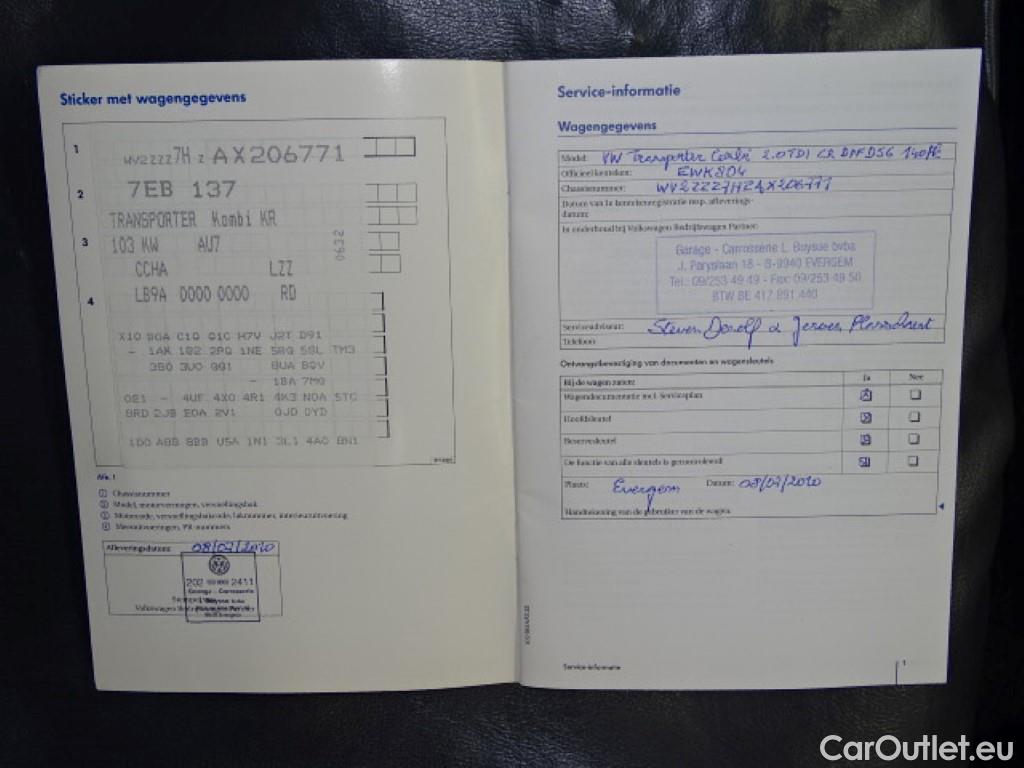 Sticker met wagengegevens
1
WV2ZZZ7H Z AX206771
2
7EB 137
TRANSPORTER Kombi KR
3
103 KW AU7
0632
CCHA LZZ
4
LB9A 0000 0000 RD
X10 B0A C1Q Q1C H7V J2T D91
- 1AK 1G2 2PQ 1NE 5RG 5SL TM3
3B0 3U0 GG1 8UA 8QV
- 1BA 7MG
0E1 - 4UF 4X0 4R1 4K3 N0A 5TC
8RD 2JB E0A 2V1 0JD 0YD
1D0 A8B 8BB U5A 1N1 3L1 4A0 BN1
Afb. 1
1 Chassisnummer
2 Model, motorvermogen, versnellingsbak
3 Motorcode, versnellingsbakcode, laknummer, interieuruitvoering
4 Meeruitvoeringen, PR-nummers
Afleveringsdatum: 08/07/2010
202 2411
Garage - Carrosserie
Service-informatie
Wagengegevens
Model: VW Transporter Combi 2.0TDI CR DPF DSG 140pk
Officieel kenteken: EWK804
Chassisnummer: WV2ZZZ7HZAX206771
Datum van 1e kentekenregistratie resp. afleverings-
datum:
In onderhoud bij Volkswagen Bedrijfswagen Partner:
Garage - Carrosserie L. Buysse bvba
J. Paryslaan 18 - B-9940 EVERGEM
Tel.: 09/253 49 49 - Fax: 09/253 49 50
BTW BE 417 891 440
Serviceadviseur: Steven &
Telefoon:
Ontvangstbevestiging van documenten en wagensleutels
Bij de wagen zaten: Ja Nee
Wagendocumentatie incl. Serviceplan
Hoofdsleutel
Reservesleutel
De functie van alle sleutels is gecontroleerd
Plaats: Evergem Datum: 08/07/2010
Handtekening van de gebruiker van de wagen
Service-informatie 1
CarOutlet.eu